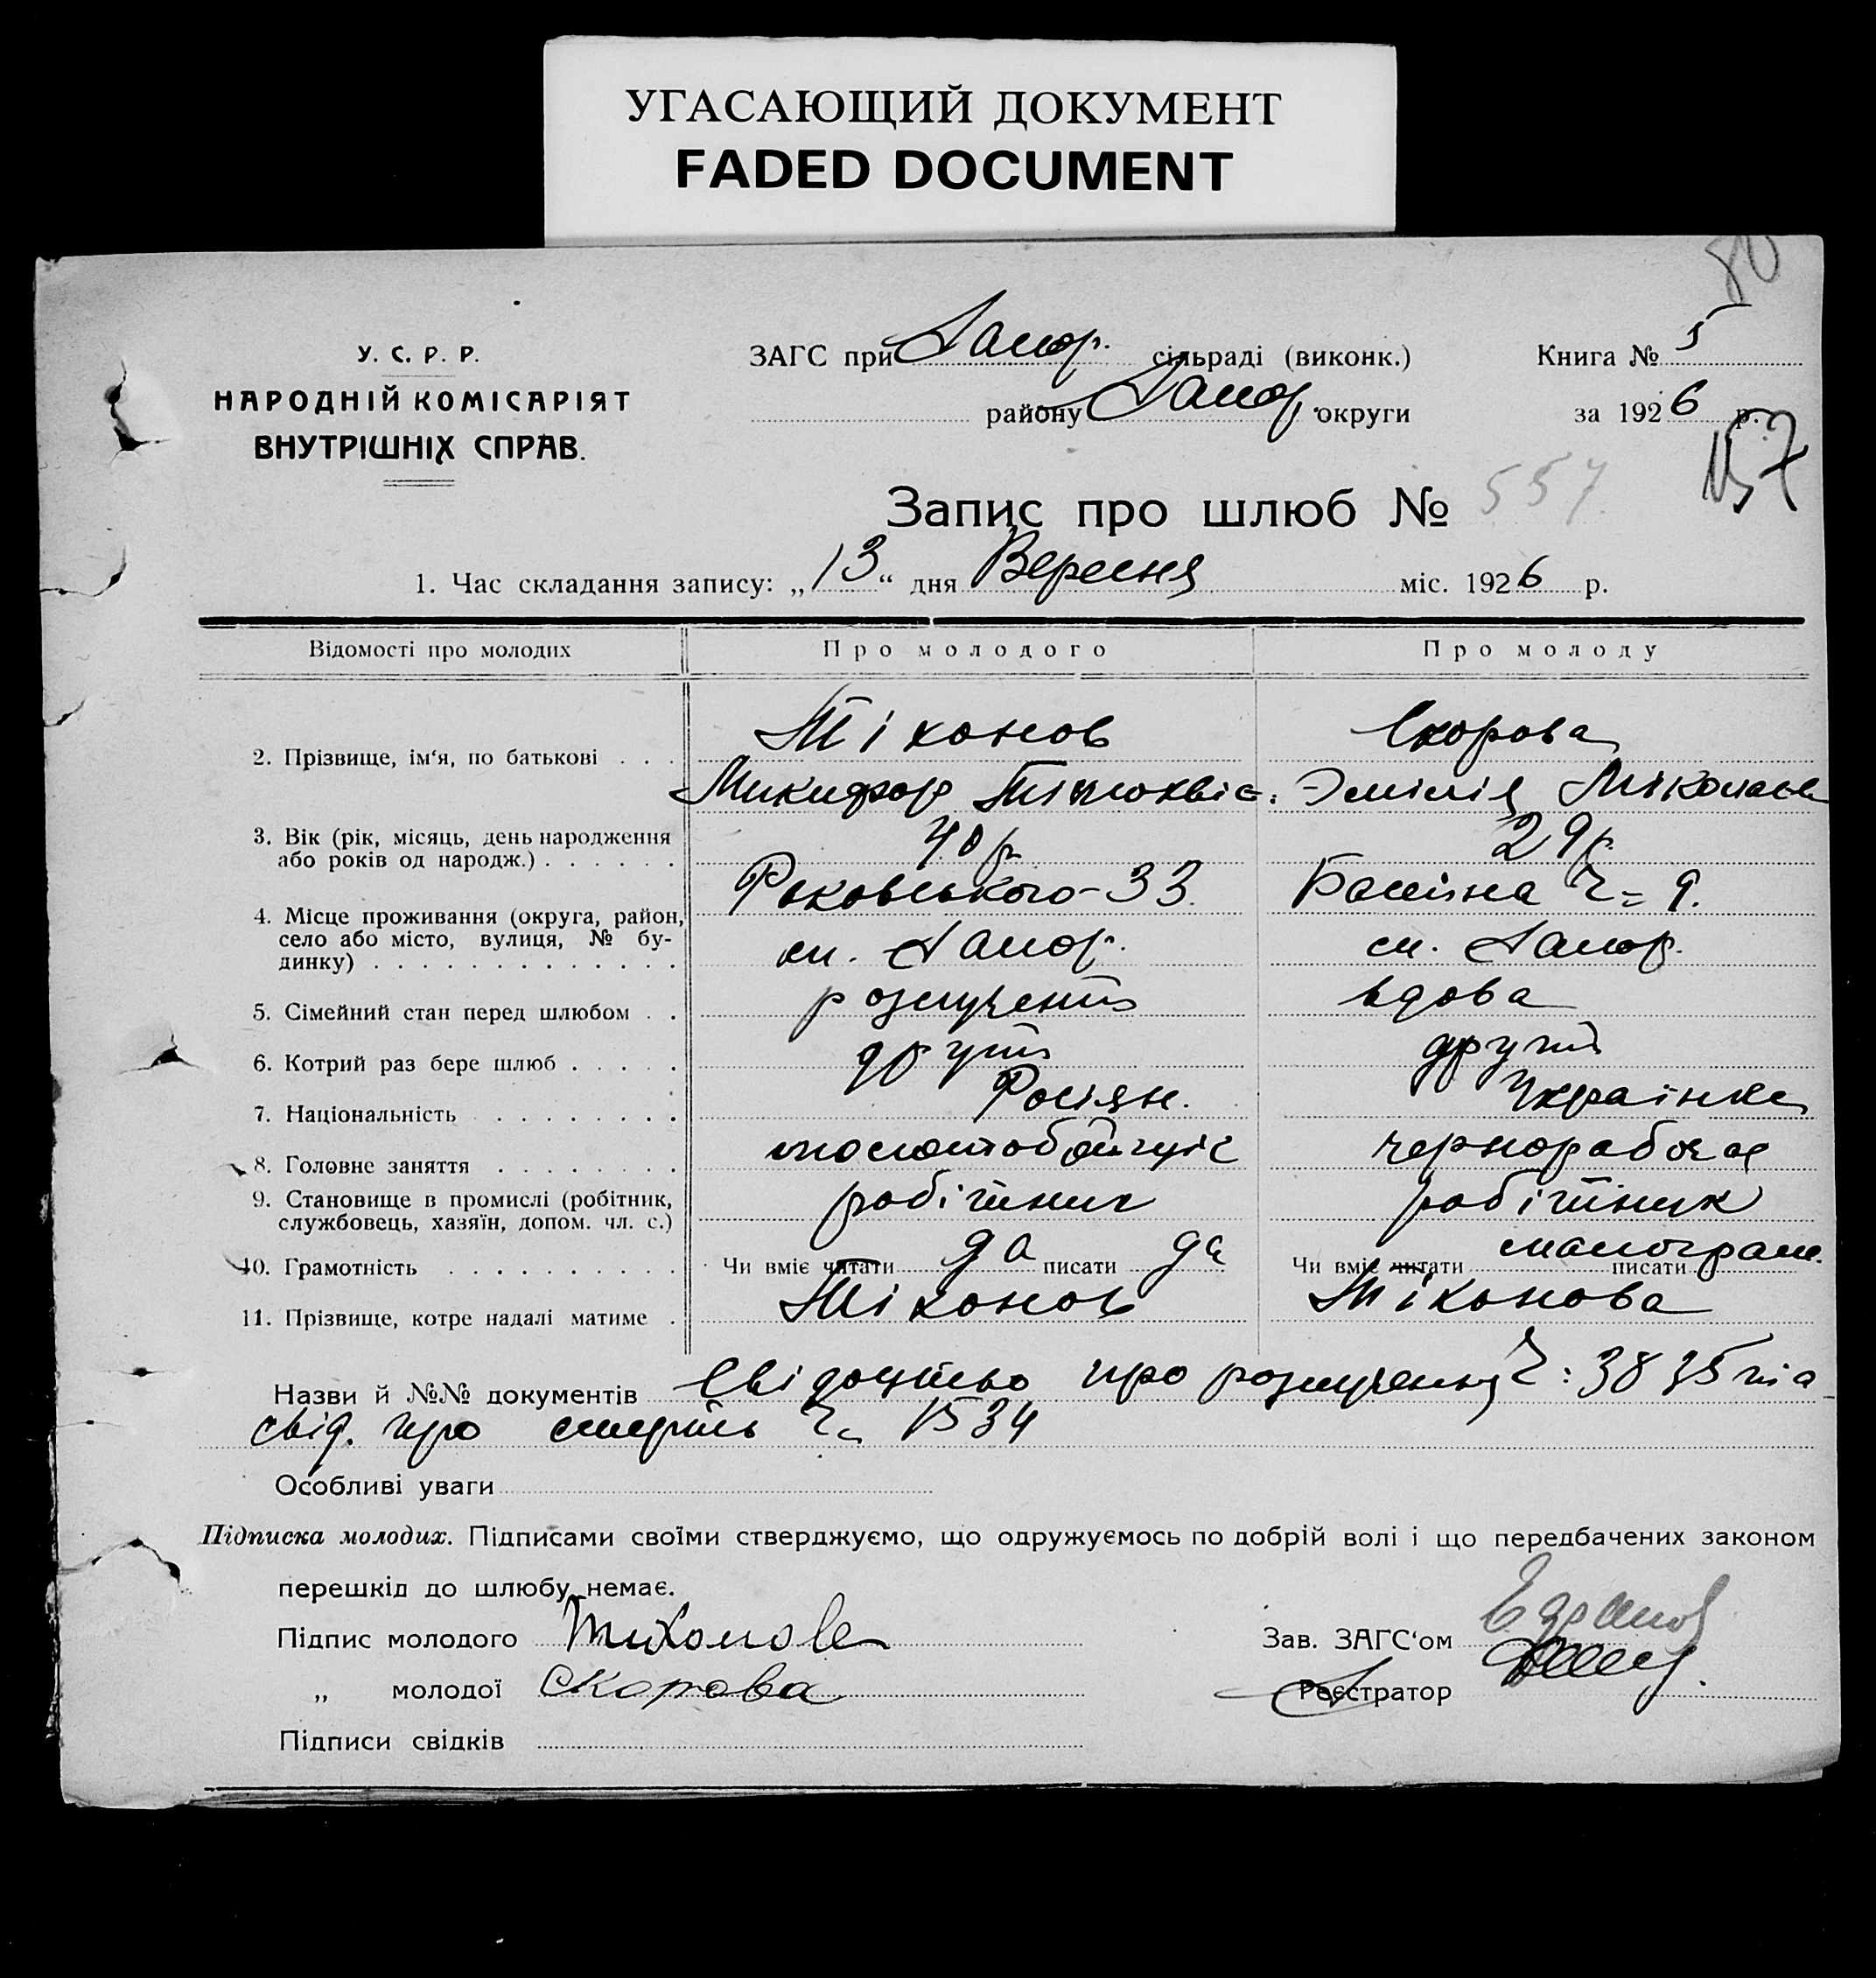 УГАСАЮЩИЙ ДОКУМЕНТ
FADED DOCUMENT
80
У. С. Р. Р.
НАРОДНІЙ КОМІСАРІЯТ
ВНУТРІШНІХ СПРАВ.
ЗАГС при Запор. сільраді (виконк.)
району Запор. округи
Книга № 5
за 1926 р.
157
Запис про шлюб № 557
1. Час складання запису: „13“ дня Вересня міс. 1926 р.
Відомості про молодих Про молодого Про молоду
2. Прізвище, ім‘я, по батькові . . . Тіхонов Скорова
Микифор Эмілія Міколаев
3. Вік (рік, місяць, день народження
або років од народж.) . . . . . . 40 р 29 р.
4. Місце проживання (округа, район,
село або місто, вулиця, № бу-
динку) . . . . . . . . . . . . .
Раковського-33. Ч= 9.
м. Запор. м. Запор.
5. Сімейний стан перед шлюбом . . вдова
6. Котрий раз бере шлюб . . . . . другий другий
7. Національність . . . . . . . . Росіян. Українка
8. Головне заняття . . . . . . . . чернорабочая
9. Становище в промислі (робітник,
службовець, хазяїн, допом. чл. с.) робітник робітник
10. Грамотність . . . . . . . . . . Чи вміє читати да писати да Чи вміє читати писати малограм.
11. Прізвище, котре надалі матиме . Тіхонов Тіхонова
Назви й №№ документів Свідоцтво про розлучення Ч: 3835 та
свід. про смерть Ч= 1534
Особливі уваги
Підписка молодих. Підписами своїми стверджуємо, що одружуємось по добрій волі і що передбачених законом
перешкід до шлюбу немає.
Підпис молодого Тихонов
Зав. ЗАГС‘ом
„ молодої Скорова
Реєстратор
Підписи свідків